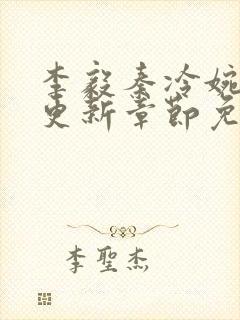 李毅秦冷婉
更新章节免
李聖杰